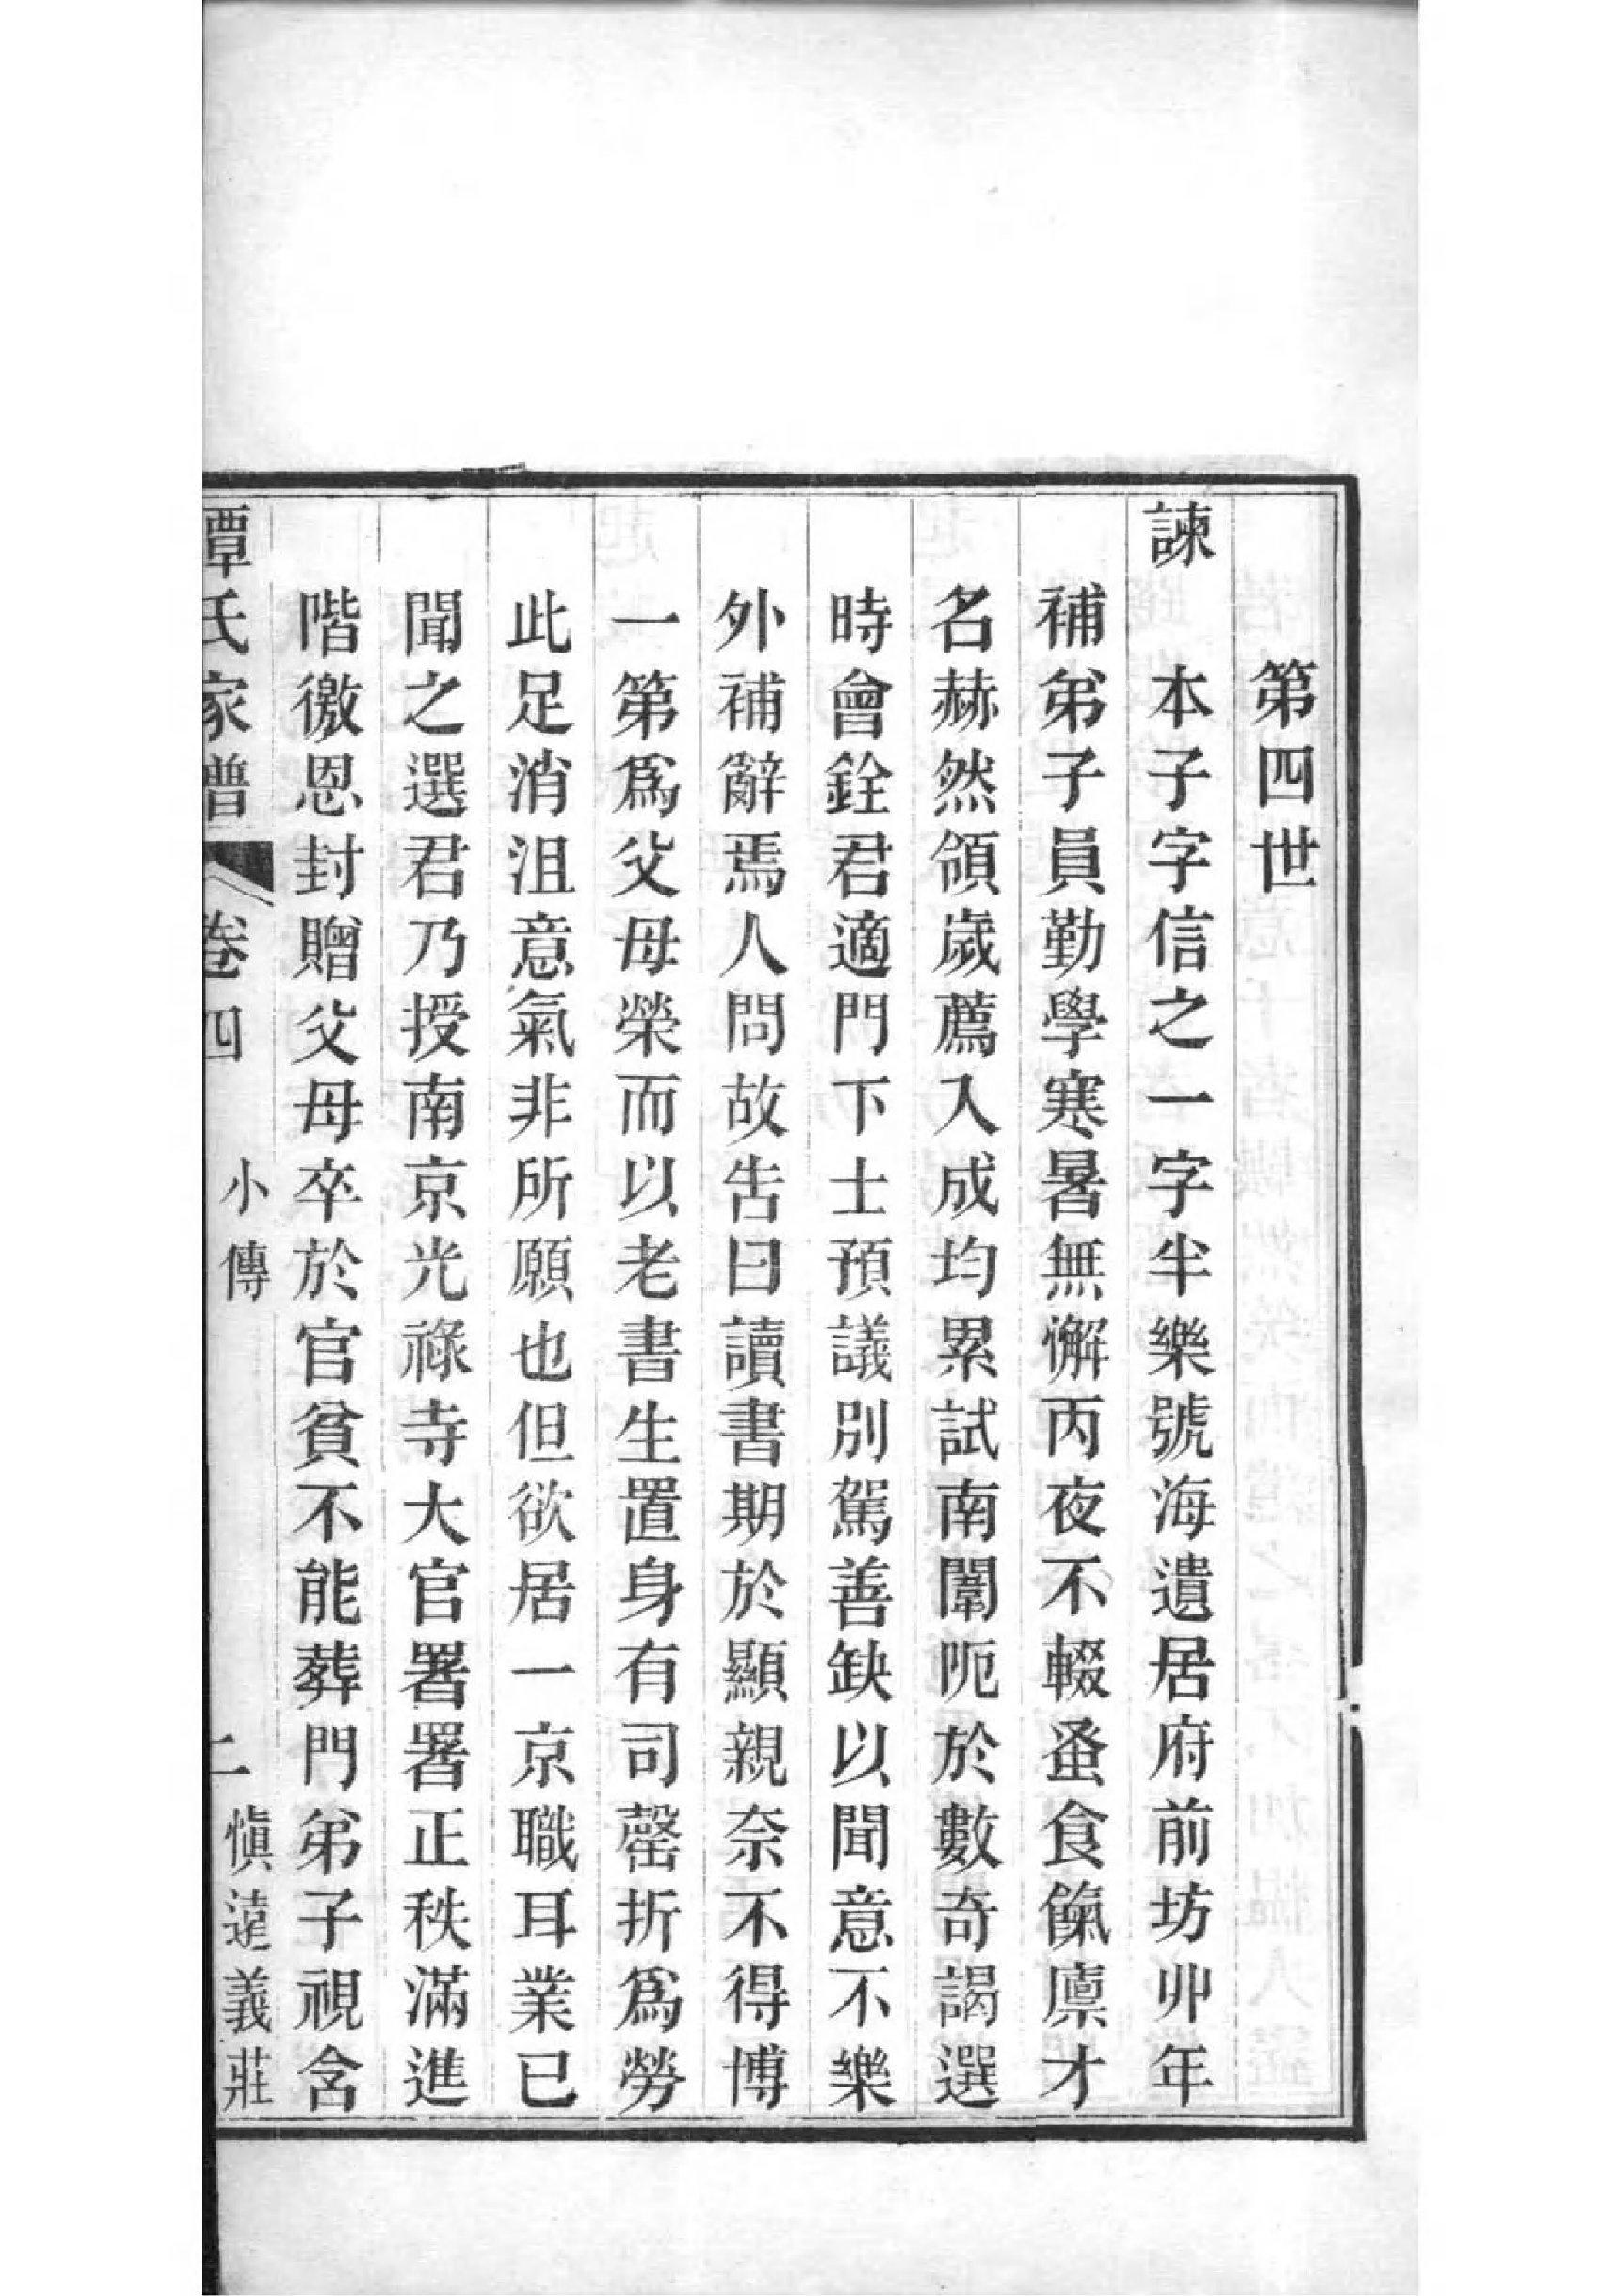 第四世
諫 本子字信之一字半樂號海遺居府前坊丱年
補弟子員勤學寒暑無懈丙夜不輟蚤食餼廩才
名赫然領歲薦入成均累試南闈阨於數奇謁選
時會銓君適門下士預議別駕善缺以聞意不樂
外補辭焉人問故告曰讀書期於顯親奈不得博
一第爲父母榮而以老書生置身有司罄折爲勞
此足消沮意氣非所願也但欲居一京職耳業已
聞之選君乃授南京光祿寺大官署署正秩滿進
階徼恩封贈父母卒於官貧不能葬門弟子視含
譚氏家譜 卷四 小傳 二 愼遠義莊